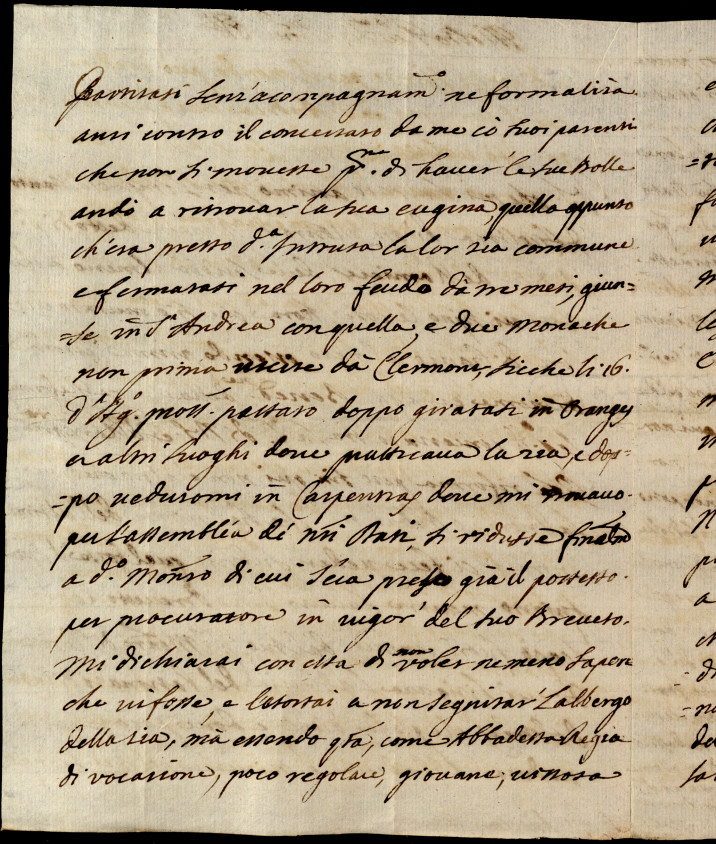 Partitasi senz'acompagnam.o ne formalità
anzi contro il concertato da me cò suoi parenti
che non si movesse p.ma di haver le sue Bolle
andò a ritrovar la sua cugina, quella appunto
ch'era presso d.a Intrusa la lor zia commune
e fermatasi nel loro feudo da tre mesi, giun=
=se in S.t Andrea con quella, e due Monache
non prima uscite da Clermont, sicche li 16.
d'Ag.o pross. passato doppo giratasi in Oranges
et altri luoghi dove pratticava la zia, e dop=
=po vedutomi in Carpentras dove mi trovavo
per l'assemblea de nri Stati, si ridusse finalm.
a d.o Monro di cui s'era preso già il possesso
per procuratore in vigor del suo Breveto.
Mi dichiarai con essa di non voler nemeno sapere
che vi fosse, e l'esortai a non seguitar l'albergo
della zia, mà essendo qta, come Abbadessa Regia
di vocazione, poco regolare, giovane, vistosa